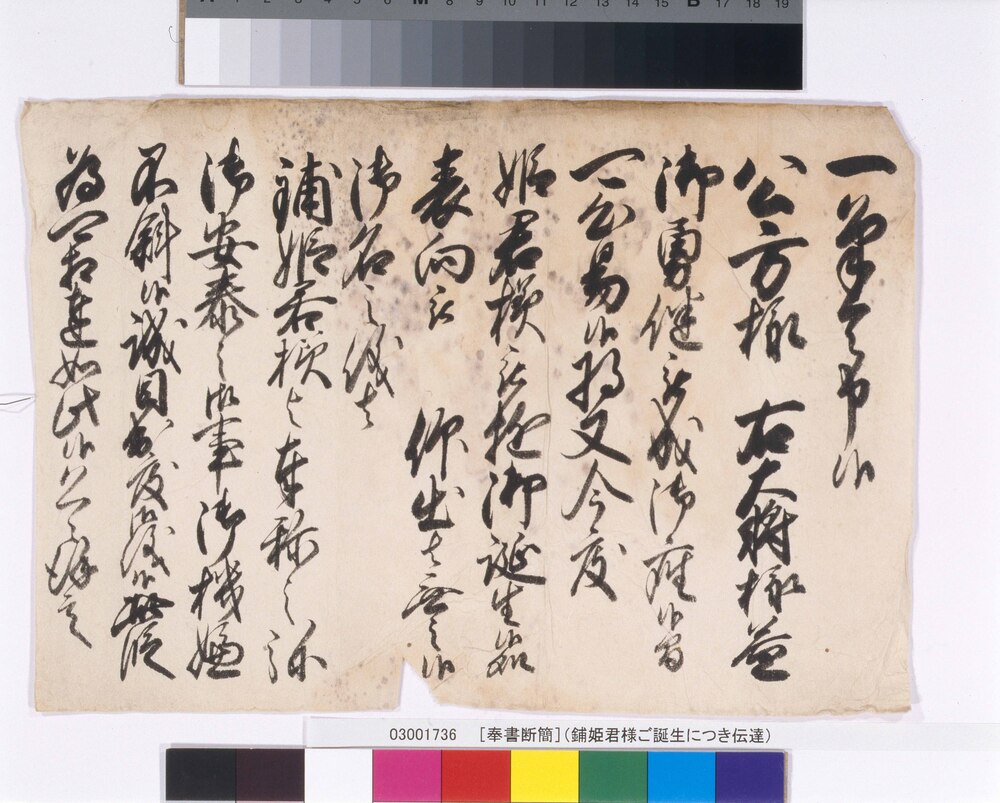 一筆令啓候
公方様　右大将様益
御勇健被成御座候間
可心易候将又今度
姫君様被遊御誕生候
表向被　仰出者無之候
御名之儀者
鋪姫君様与奉称之弥
御安泰之御事御機嫌
不斜候誠目出度儀候此段
為可相達如此候恐々謹言
03001736　[奉書断簡](鋪姫君様ご誕生につき伝達)
A 1 2 3 4 5 6 M 8 9 10 11 12 13 14 15 B 17 18 19